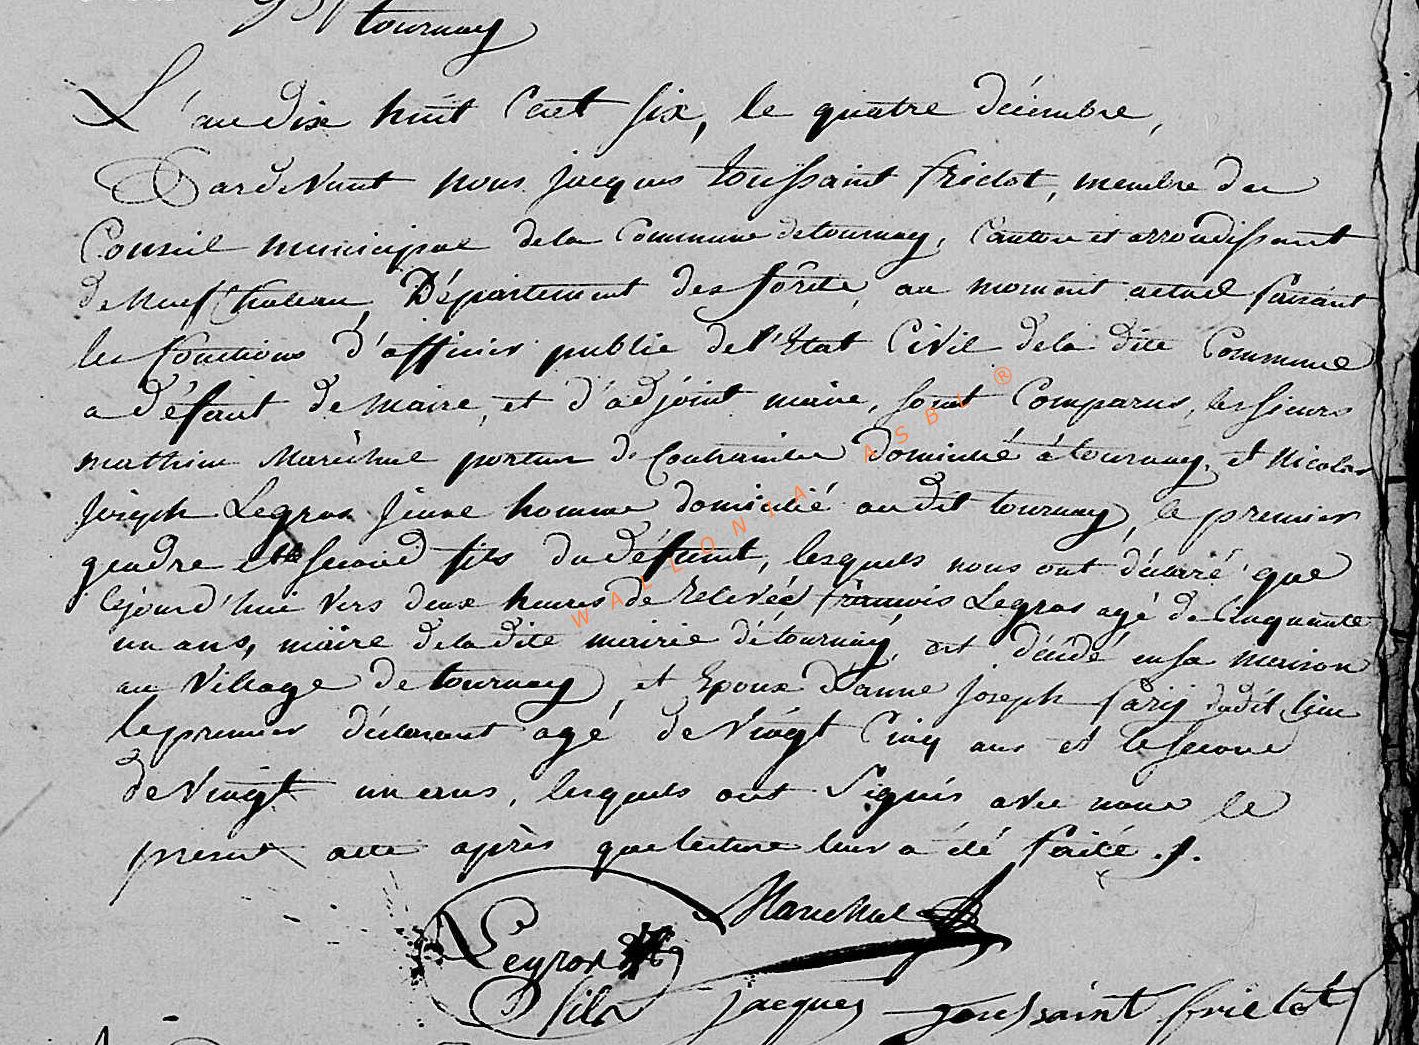 tournay
L'an dix huit Cent six, le quatre décembre,
Pardevant nous jacques toussaint frielot, membre du
Conseil municipal dela Commune detournay, Canton et arrondissment
de Neufchateau, Département des forête, au moment actuel faisant
les fonctions d'officier public del'Etat Civil dela dite Commune
a défaut de Maire, et d'adjoint maire, sont Comparus, les sieurs
mathieu Maréchal porteur de Contrainte domicilié à tournay, et Nicolas
joseph Legros jeune homme domicilié audit tournay, le premier
gendre et le second fils du défunt, lesquels nous ont déclaré que
cejourd'hui vers deux heures de relevée françois Legros agé de Cinquante
un ans, maire deladite mairie détournay, est décédé ensa maison
au Village detournay, et Epoux d'anne joseph dudit lieu
lepremier déclarant agé de Vingt Cinq ans et lesecond
de Vingt un ans, lesquels ont Signés avec nous le
present acte après quelecture leur a été faite.
Marechal
Legros
fils
jacques toussaint frielot
WALLONIA ASBL ®